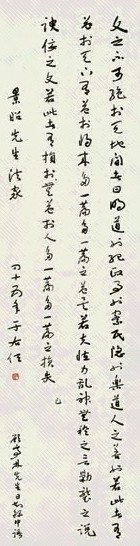 文之不可絕於天地間者曰明道也紀政事也察民隱也樂道人之善也若此者有
益於天下有益於將來多一篇多一篇之益矣若夫怪力亂神無稽之言勦襲之說
諛佞之文若此者有損於無益於人多一篇多一篇之損矣
己
景昭先生法家
四十五年于右任
顧亭林先生日知錄中語